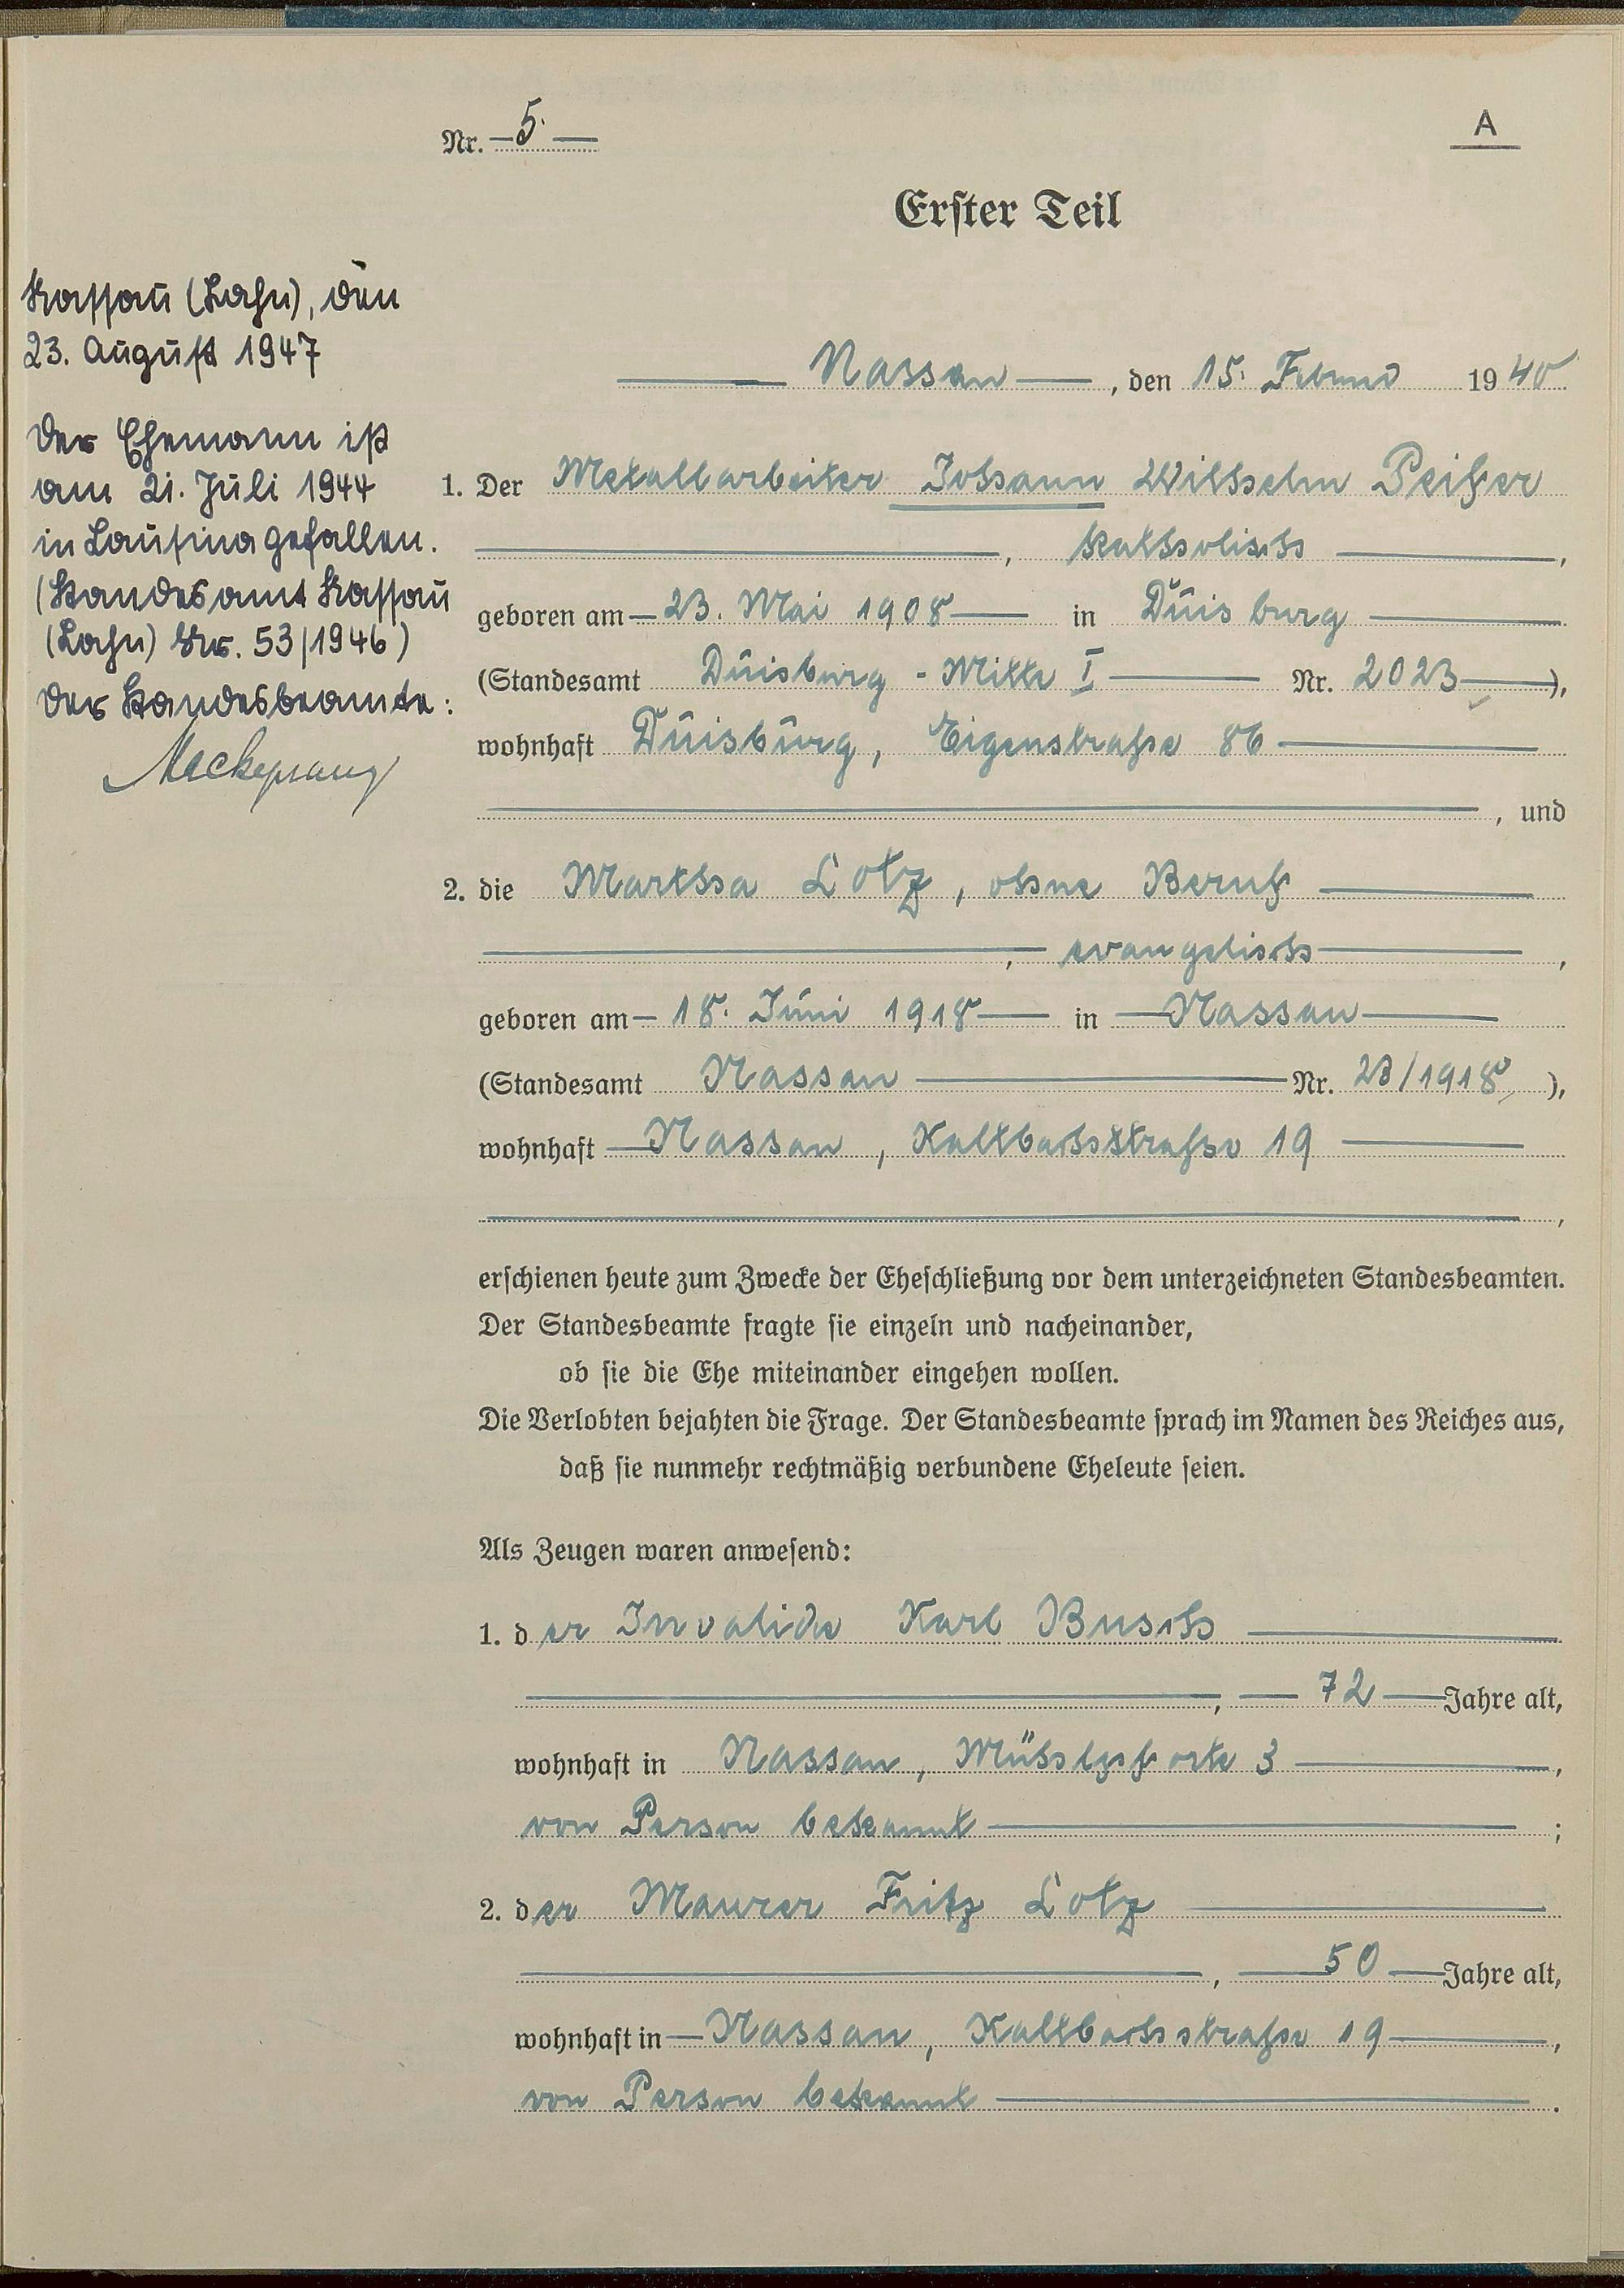 Nr. 5.
A
Erster Teil
Nassau (Lahn), den
23. August 1947
Der Ehemann ist
am 21. Juli 1944
in gefallen.
(Standesamt Nassau
(Lahn) Nr. 53/1946)
Der Standesbeamte:
Nassau, den 15. Februar 1940
1. Der Metallarbeiter Johann Wilhelm Peifer
, katholisch,
geboren am 23. Mai 1908 in Duisburg
(Standesamt Duisburg-Mitte I Nr. 2023),
wohnhaft Duisburg, Eigenstraße 86
, und
2. die Martha Lotz, ohne Beruf
, evangelisch,
geboren am 18. Juni 1918 in Nassau
(Standesamt Nassau Nr. 23/1918),
wohnhaft Nassau, Kaltbachstraße 19
,
erschienen heute zum Zwecke der Eheschließung vor dem unterzeichneten Standesbeamten.
Der Standesbeamte fragte sie einzeln und nacheinander,
ob sie die Ehe miteinander eingehen wollen.
Die Verlobten bejahten die Frage. Der Standesbeamte sprach im Namen des Reiches aus,
daß sie nunmehr rechtmäßig verbundene Eheleute seien.
Als Zeugen waren anwesend:
1. der Invalide Karl Busch
, 72 Jahre alt,
wohnhaft in Nassau, Mühlpforte 3,
von Person bekannt;
2. der Maurer Fritz Lotz
, 50 Jahre alt,
wohnhaft in Nassau, Kaltbachstraße 19,
von Person bekannt.